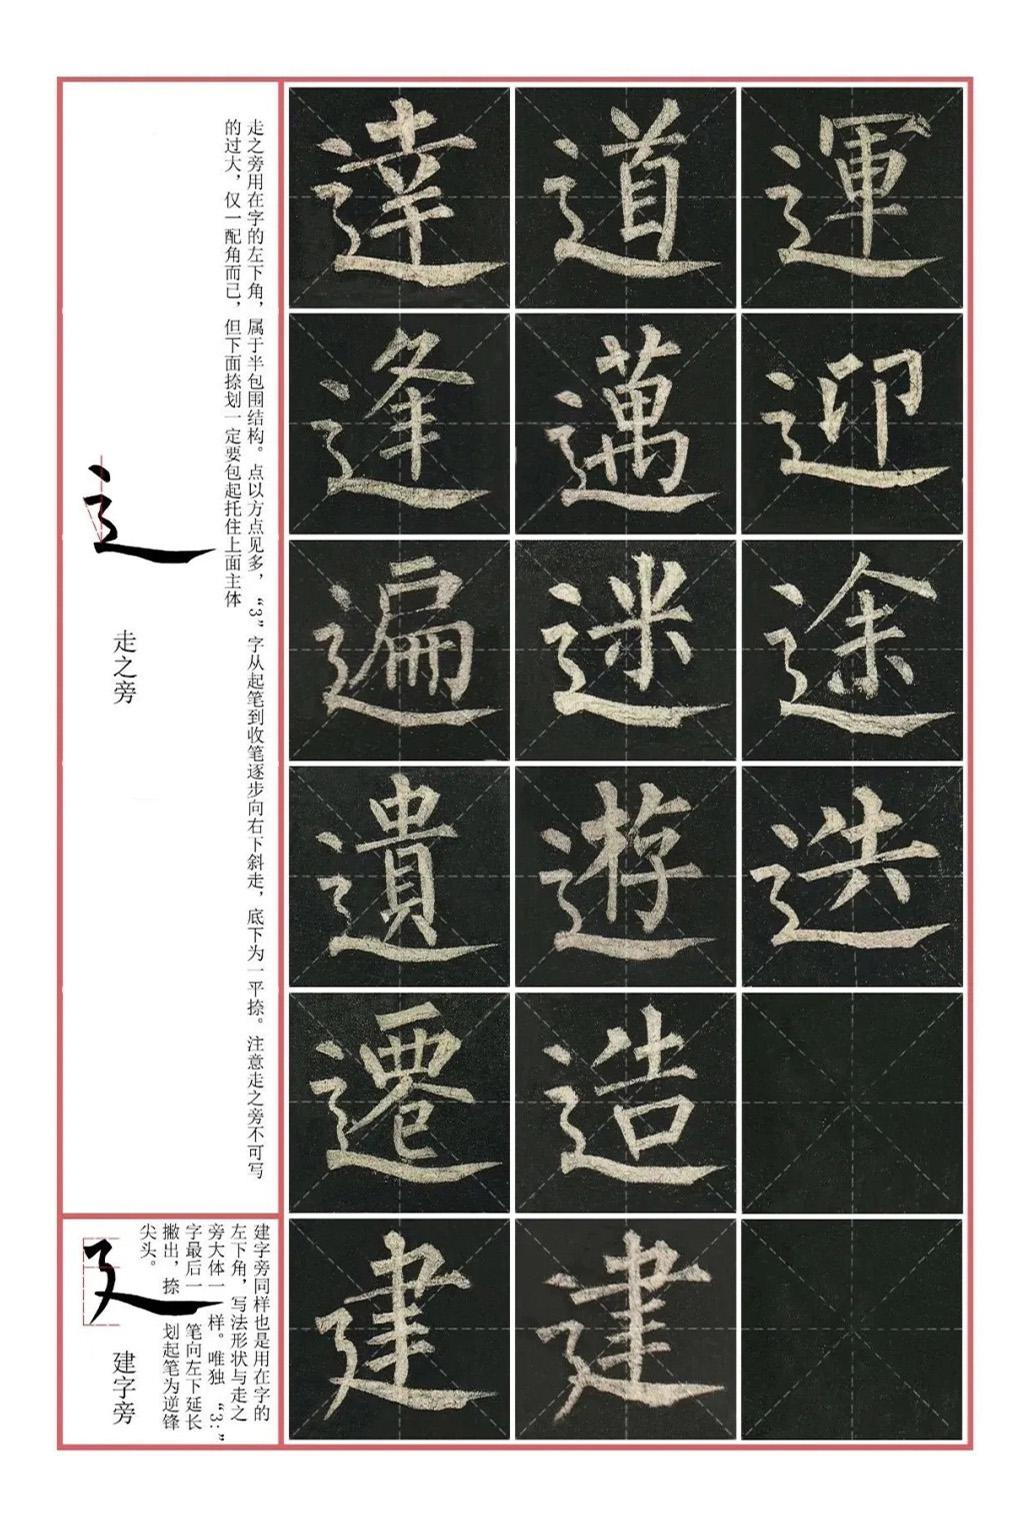 運
迎
途
迭
道
邁
迷
遊
造
建
達
逢
遍
遺
遷
建
走之旁用在字的左下角，属于半包围结构。点以方点见多，“3”字从起笔到收笔逐步向右下斜走，底下为一平捺。注意走之旁不可写
的过大，仅一配角而已，但下面捺划一定要包起托住上面主体
走之旁
辶
建字旁同样也是用在字的
左下角，写法形状与走之
旁大体一样。唯独“3：”
字最后一笔向左下延长
撇出，捺划起笔为逆锋
尖头。
建字旁
廴